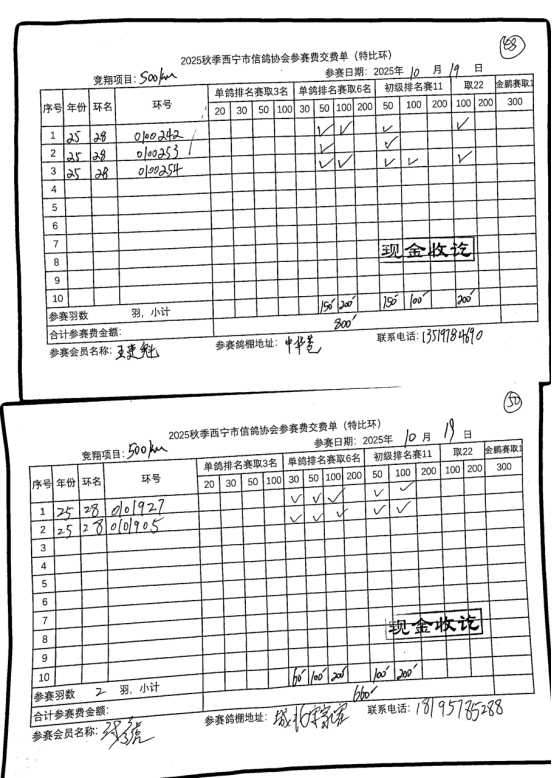 168
2025秋季西宁市信鸽协会参赛费交费单（特比环）
竞翔项目：500km 参赛日期：2025年 10 月 19 日
序号 年份 环名 环号 单鸽排名赛取3名 单鸽排名赛取6名 初级排名赛11 取22 金鹏赛取1
20 30 50 100 30 50 100 200 50 100 200 100 200 300
1 25 28 0100242 ✓ ✓ ✓ ✓
2 25 28 0100253 ✓ ✓
3 25 28 0100254 ✓ ✓ ✓ ✓ ✓
4
5
6
7
现金收讫
8
9
10
参赛羽数 羽，小计 150 200 150 100 200
合计参赛费金额： 800
参赛会员名称： 参赛鸽棚地址： 联系电话：13519784690
50
2025秋季西宁市信鸽协会参赛费交费单（特比环）
竞翔项目：500km 参赛日期：2025年 10 月 19 日
序号 年份 环名 环号 单鸽排名赛取3名 单鸽排名赛取6名 初级排名赛11 取22 金鹏赛取1
20 30 50 100 30 50 100 200 50 100 200 100 200 300
1 25 28 0101927 ✓ ✓ ✓ ✓ ✓
2 25 28 0101905 ✓ ✓ ✓ ✓ ✓
3
4
5
6
7
现金收讫
8
9
10
参赛羽数 2 羽，小计 60 100 200 100 200
合计参赛费金额： 660
参赛会员名称： 参赛鸽棚地址：城北 联系电话：18195785288